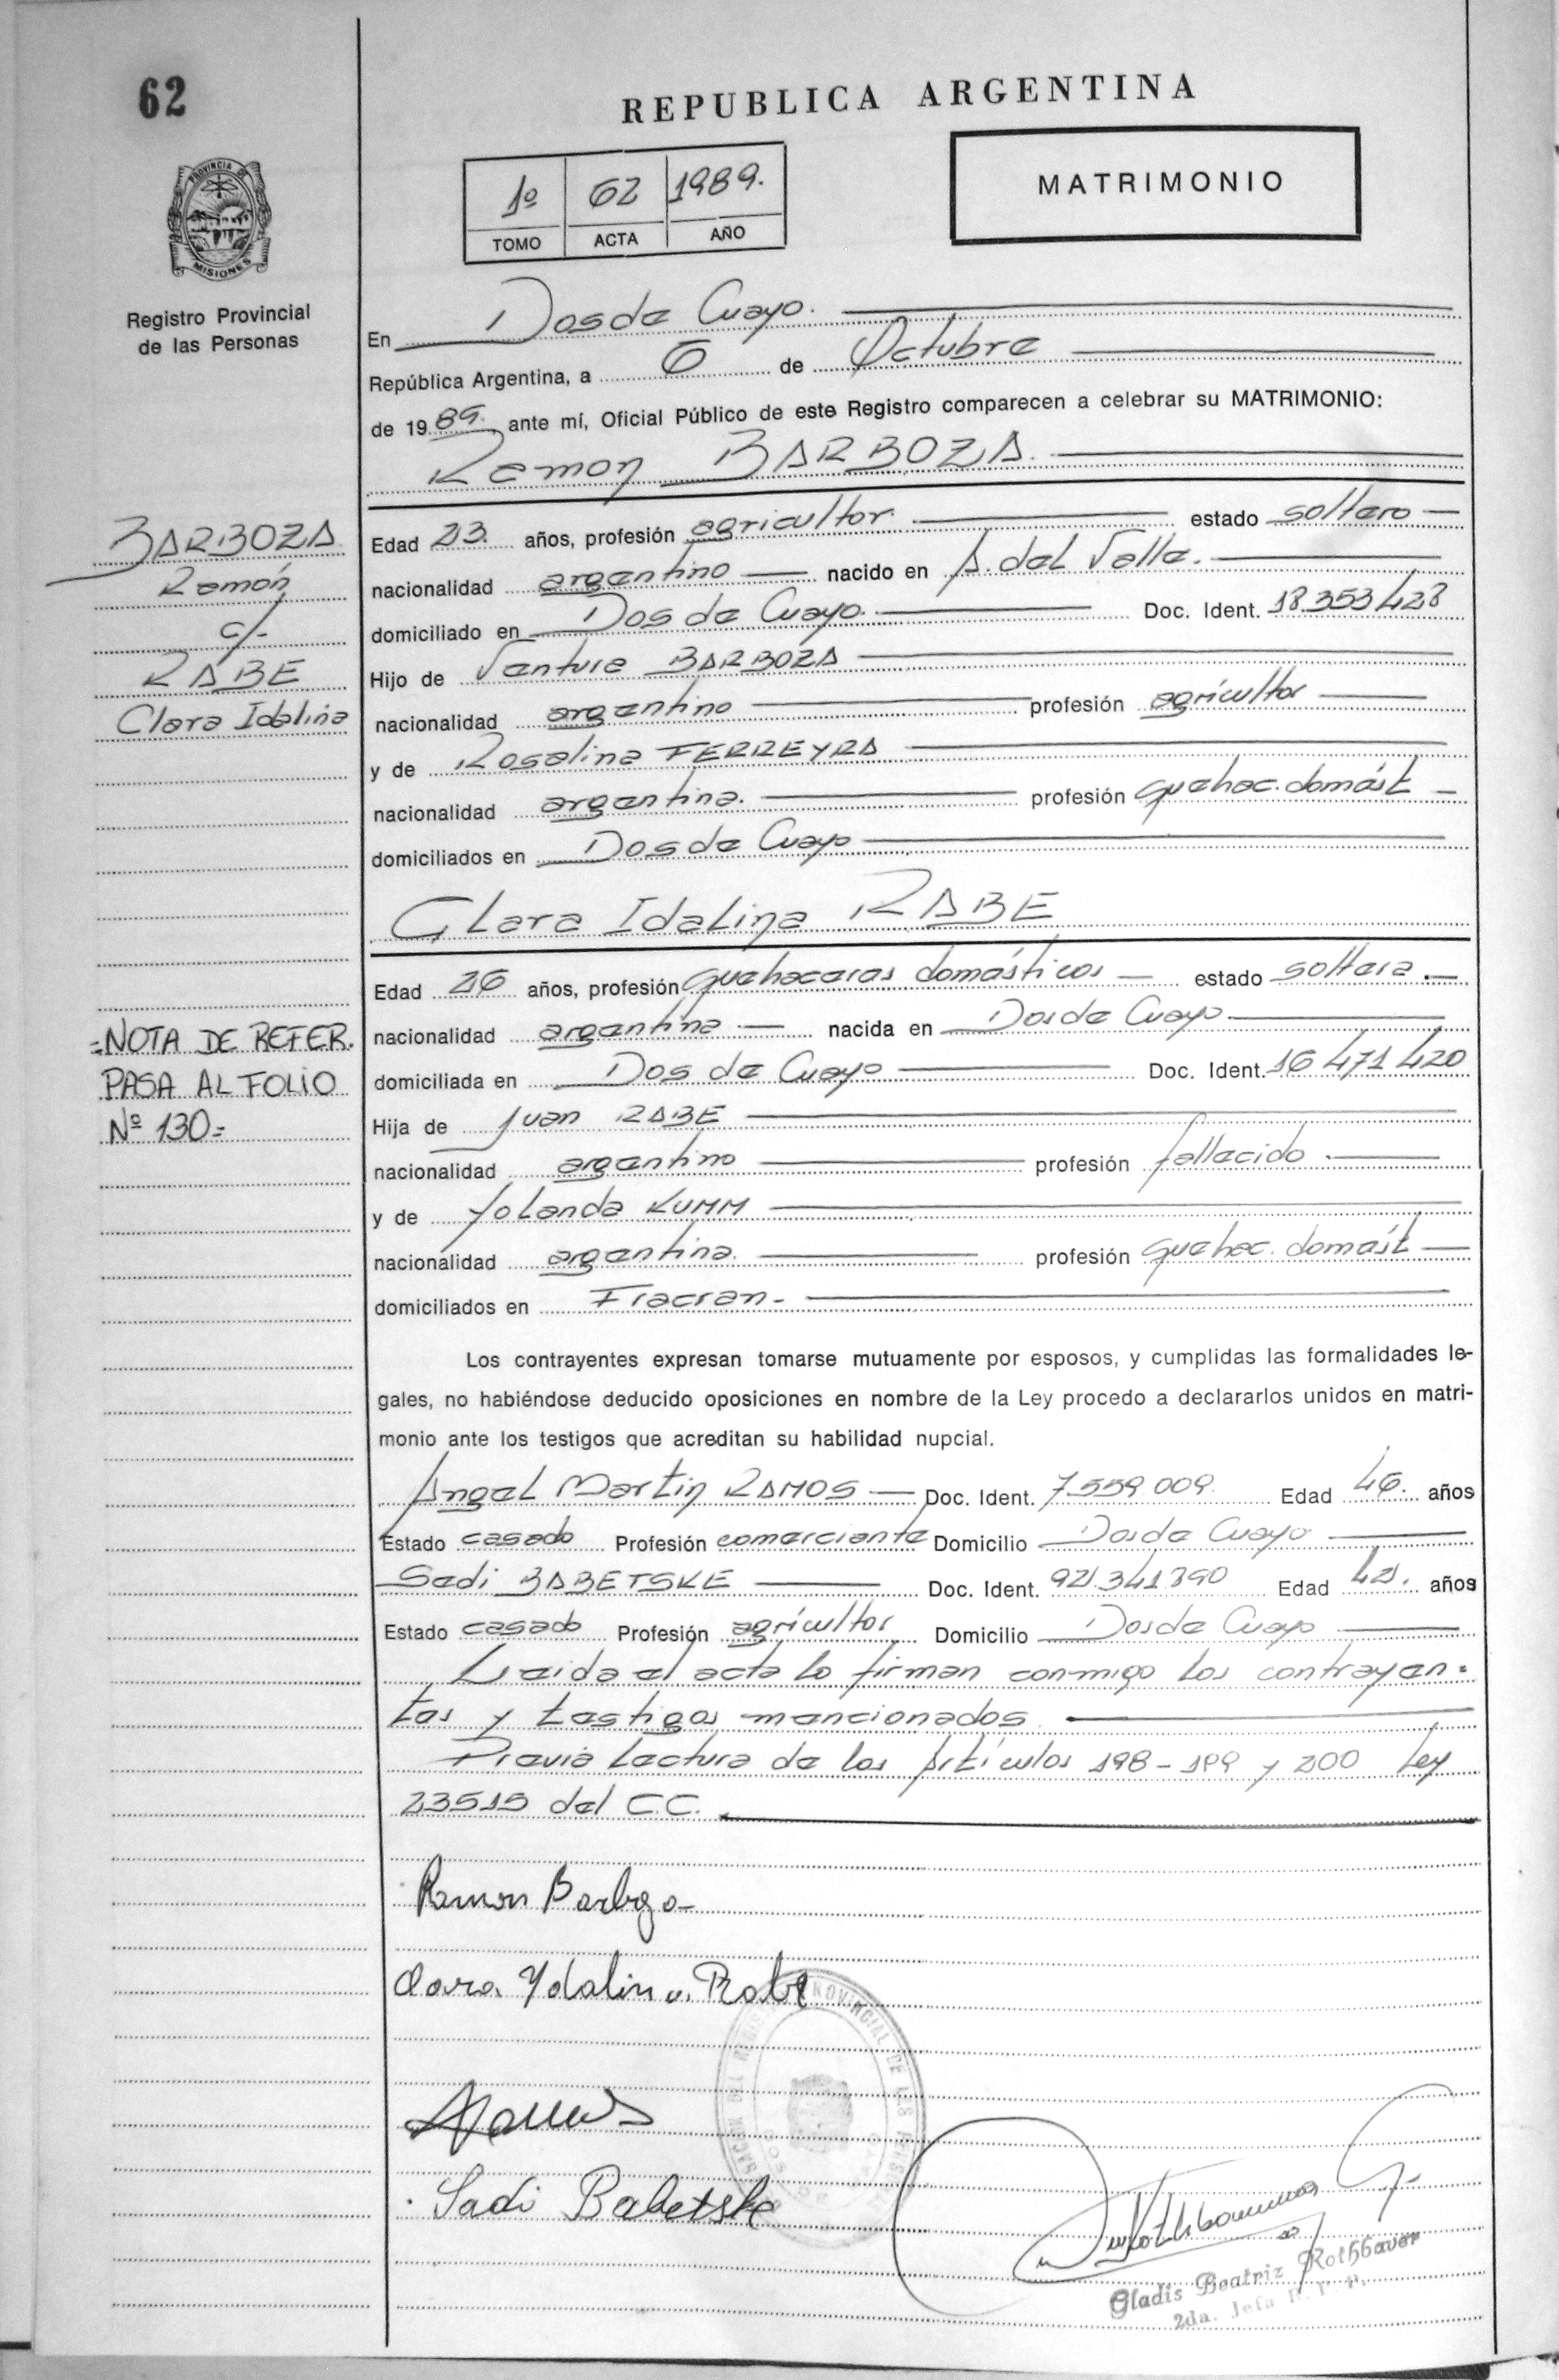 62
REPUBLICA ARGENTINA
1º 62 1989.
TOMO ACTA AÑO
MATRIMONIO
PROVINCIA DE
MISIONES
Registro Provincial
de las Personas
En Dos de Mayo.
República Argentina, a 6 de Octubre
de 1989. ante mí, Oficial Público de este Registro comparecen a celebrar su MATRIMONIO:
Ramon BARBOZA.
BARBOZA
Ramón
c/-
RABE
Clara Idalina
Edad 23. años, profesión agricultor estado soltero
nacionalidad argentino nacido en A. del Valle.
domiciliado en Dos de Mayo. Doc. Ident. 18.353.428
Hijo de Ventura BARBOZA
nacionalidad argentino profesión agricultor
y de Rosalina FERREYRA
nacionalidad argentina. profesión quehac. domést
domiciliados en Dos de Mayo
Clara Idalina RABE
Edad 26 años, profesión quehaceres domésticos estado soltera.
nacionalidad argentina nacida en Dos de Mayo
domiciliada en Dos de Mayo Doc. Ident. 16 471 420
Hija de Juan RABE
nacionalidad argentino profesión fallecido
y de Yolanda KUMM
nacionalidad argentina. profesión quehac. domést
domiciliados en Fracran-
=NOTA DE REFER.
PASA AL FOLIO
Nº 130=
Los contrayentes expresan tomarse mutuamente por esposos, y cumplidas las formalidades le-
gales, no habiéndose deducido oposiciones en nombre de la Ley procedo a declararlos unidos en matri-
monio ante los testigos que acreditan su habilidad nupcial.
Angel Martin RAMOS Doc. Ident. 7.559.009. Edad 46. años
Estado casado Profesión comerciante Domicilio Dos de Mayo
Sadi BABETSKE Doc. Ident. 92.341.390 Edad 42. años
Estado casado Profesión agricultor Domicilio Dos de Mayo
Leida el acta lo firman conmigo los contrayen-
tes y testigos mencionados.
Previa lectura de los Artículos 198-199 y 200 Ley
23515 del C.C.
Ramon Barboza
Clara Ydalina Rabe
Sadi Babetske
Gladis Beatriz Rothbauer
2da. Jefa R. P. P.